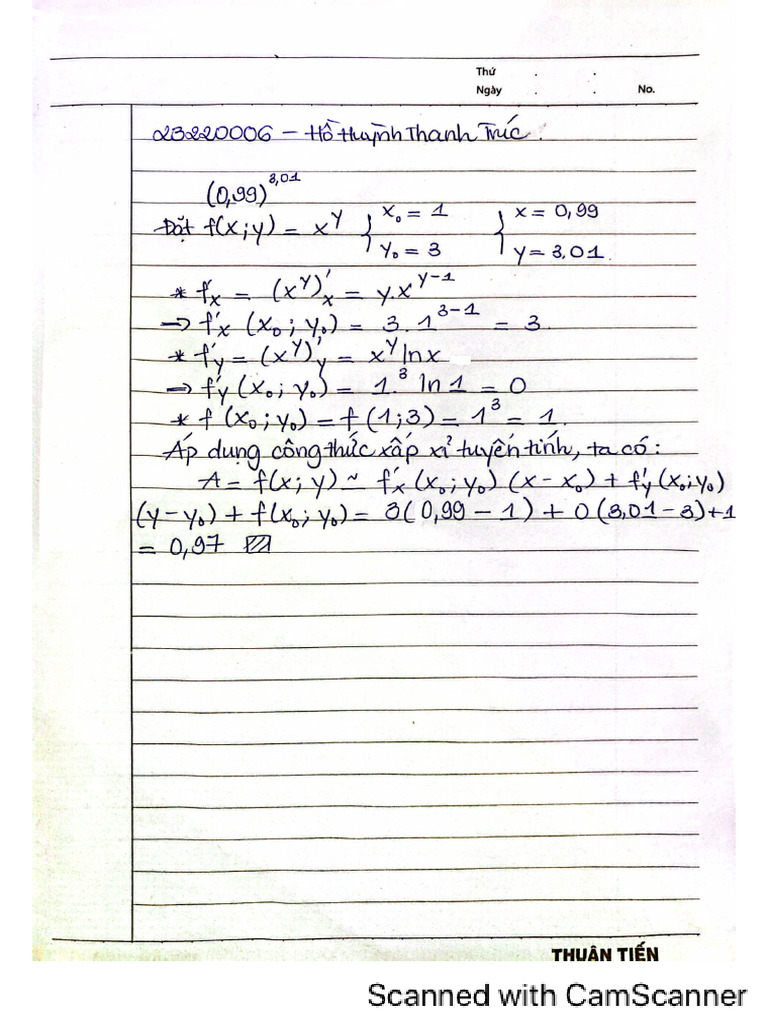 Thứ . .
Ngày . . No.
23220006 – Hồ Huỳnh Thanh Trúc.
(0,99)^3,01
Đặt f(x;y) = x^y { x₀ = 1 { x = 0,99
y₀ = 3 y = 3,01.
* f'x = (x^y)'x = y.x^y-1
→ f'x (x₀; y₀) = 3. 1^3-1 = 3.
* f'y = (x^y)'y = x^y ln x
→ f'y (x₀; y₀) = 1.^3 ln 1 = 0
* f (x₀; y₀) = f (1;3) = 1^3 = 1.
Áp dụng công thức xấp xỉ tuyến tính, ta có:
A = f(x; y) ~ f'x (x₀; y₀) (x – x₀) + f'y (x₀; y₀)
(y – y₀) + f(x₀; y₀) = 3(0,99 – 1) + 0 (3,01 – 3) + 1
= 0,97
THUẬN TIẾN
Scanned with CamScanner